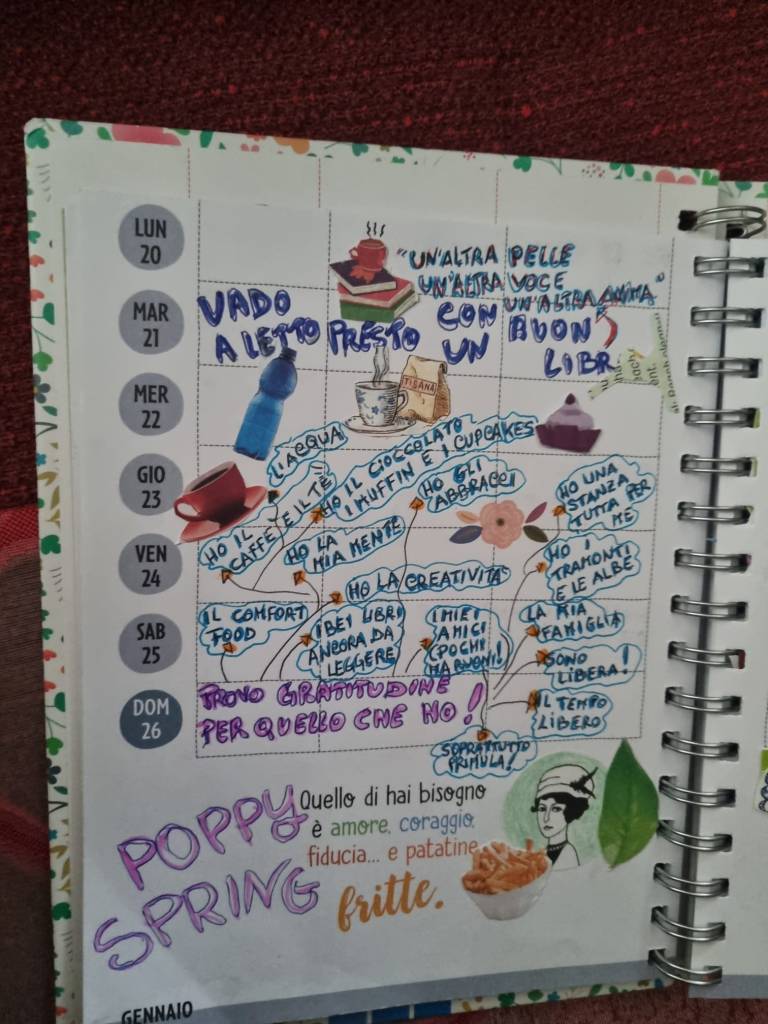 LUN
20
"UN'ALTRA PELLE
UN'ALTRA VOCE
UN'ALTRA ANIMA"
MAR
21
VADO
A LETTO PRESTO
CON
UN
BUON
LIBR
MER
22
TISANA
L'ACQUA
GIO
23
HO IL
CAFFÈ E IL TÈ
HO IL CIOCCOLATO
I MUFFIN E I CUPCAKES
HO GLI
ABBRACCI
HO UNA
STANZA
TUTTA PER
ME
VEN
24
HO LA
MIA MENTE
HO LA CREATIVITÀ
HO I
TRAMONTI
E LE ALBE
SAB
25
IL COMFORT
FOOD
I BEI LIBRI
ANCORA DA
LEGGERE
I MIEI
AMICI
(POCHI
MA BUONI!
LA MIA
FAMIGLIA
SONO
LIBERA!
IL TEMPO
LIBERO
DOM
26
TROVO GRATITUDINE
PER QUELLO CHE HO!
SOPRATTUTTO
PRIMULA!
POPPY
SPRING
Quello di hai bisogno
è amore, coraggio,
fiducia... e patatine
fritte.
GENNAIO